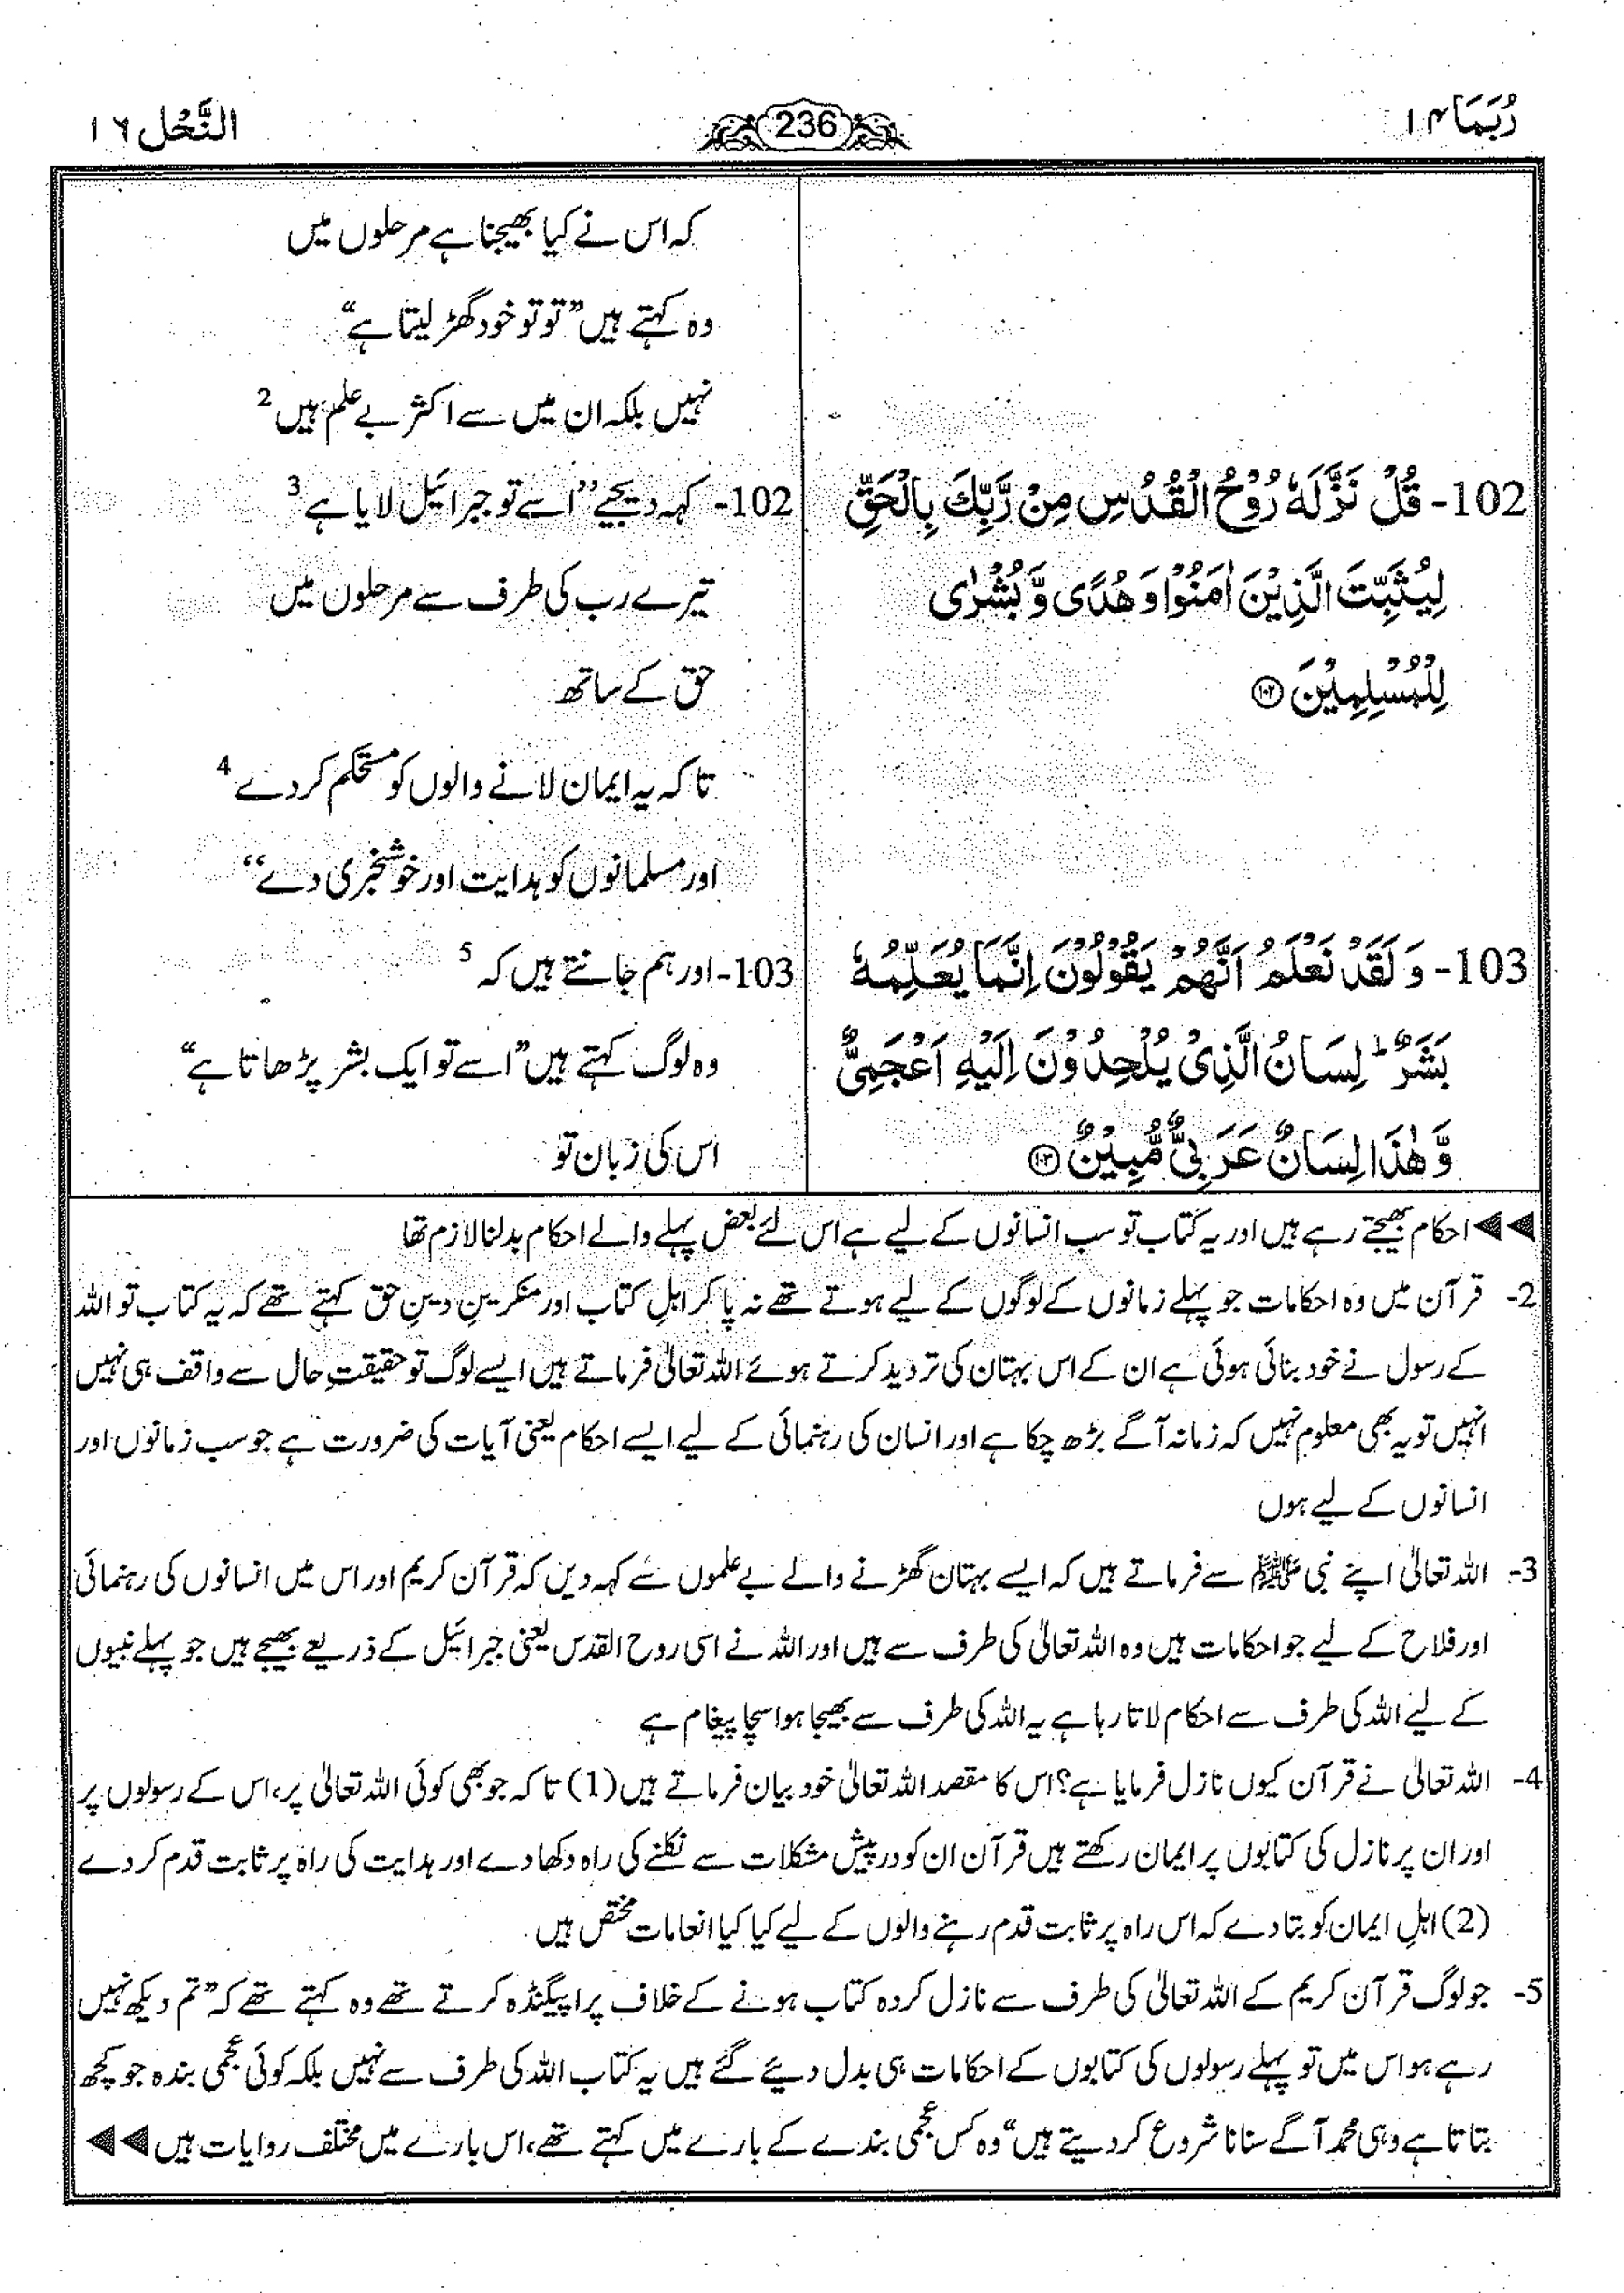 رُبَمَا ۱۴
236
النَّحْل ۱۶
102- قُلْ نَزَّلَهٗ رُوْحُ الْقُدُسِ مِنْ رَّبِّكَ بِالْحَقِّ
لِيُثَبِّتَ الَّذِيْنَ اٰمَنُوْا وَ هُدًى وَّ بُشْرٰى
لِلْمُسْلِمِيْنَ ۝۱۰۲
103- وَ لَقَدْ نَعْلَمُ اَنَّهُمْ يَقُوْلُوْنَ اِنَّمَا يُعَلِّمُهٗ
بَشَرٌ ؕ لِسَانُ الَّذِيْ يُلْحِدُوْنَ اِلَيْهِ اَعْجَمِيٌّ
وَّ هٰذَا لِسَانٌ عَرَبِيٌّ مُّبِيْنٌ ۝۱۰۳
کہ اس نے کیا بھیجنا ہے مرحلوں میں
وہ کہتے ہیں ”تو تو خود گھڑ لیتا ہے“
نہیں بلکہ ان میں سے اکثر بے علم ہیں 2
102- کہہ دیجیے ”اسے تو جبرائیل لایا ہے 3
تیرے رب کی طرف سے مرحلوں میں
حق کے ساتھ
تاکہ یہ ایمان لانے والوں کو مستحکم کر دے 4
اور مسلمانوں کو ہدایت اور خوشخبری دے“
103- اور ہم جانتے ہیں کہ 5
وہ لوگ کہتے ہیں ”اسے تو ایک بشر پڑھاتا ہے“
اس کی زبان تو
◀◀ احکام بھیجتے رہے ہیں اور یہ کتاب تو سب انسانوں کے لیے ہے اس لئے بعض پہلے والے احکام بدلنا لازم تھا
2- قرآن میں وہ احکامات جو پہلے زمانوں کے لوگوں کے لیے ہوتے تھے نہ پا کر اہلِ کتاب اور منکرینِ دینِ حق کہتے تھے کہ یہ کتاب تو اللہ
کے رسول نے خود بنائی ہوئی ہے ان کے اس بہتان کی تردید کرتے ہوئے اللہ تعالیٰ فرماتے ہیں ایسے لوگ تو حقیقتِ حال سے واقف ہی نہیں
انہیں تو یہ بھی معلوم نہیں کہ زمانہ آگے بڑھ چکا ہے اور انسان کی رہنمائی کے لیے ایسے احکام یعنی آیات کی ضرورت ہے جو سب زمانوں اور
انسانوں کے لیے ہوں
3- اللہ تعالیٰ اپنے نبی ﷺ سے فرماتے ہیں کہ ایسے بہتان گھڑنے والے بے علموں سے کہہ دیں کہ قرآن کریم اور اس میں انسانوں کی رہنمائی
اور فلاح کے لیے جو احکامات ہیں وہ اللہ تعالیٰ کی طرف سے ہیں اور اللہ نے اسی روح القدس یعنی جبرائیل کے ذریعے بھیجے ہیں جو پہلے نبیوں
کے لیے اللہ کی طرف سے احکام لاتا رہا ہے یہ اللہ کی طرف سے بھیجا ہوا سچا پیغام ہے
4- اللہ تعالیٰ نے قرآن کیوں نازل فرمایا ہے؟ اس کا مقصد اللہ تعالیٰ خود بیان فرماتے ہیں (1) تاکہ جو بھی کوئی اللہ تعالیٰ پر، اس کے رسولوں پر
اور ان پر نازل کی کتابوں پر ایمان رکھتے ہیں قرآن ان کو درپیش مشکلات سے نکلنے کی راہ دکھا دے اور ہدایت کی راہ پر ثابت قدم کر دے
(2) اہلِ ایمان کو بتا دے کہ اس راہ پر ثابت قدم رہنے والوں کے لیے کیا کیا انعامات مختص ہیں
5- جو لوگ قرآن کریم کے اللہ تعالیٰ کی طرف سے نازل کردہ کتاب ہونے کے خلاف پراپیگنڈہ کرتے تھے وہ کہتے تھے کہ ”تم دیکھ نہیں
رہے ہو اس میں تو پہلے رسولوں کی کتابوں کے احکامات ہی بدل دیئے گئے ہیں یہ کتاب اللہ کی طرف سے نہیں بلکہ کوئی عجمی بندہ جو کچھ
بتاتا ہے وہی محمد آگے سنانا شروع کر دیتے ہیں“ وہ کس عجمی بندے کے بارے میں کہتے تھے، اس بارے میں مختلف روایات ہیں ◀◀